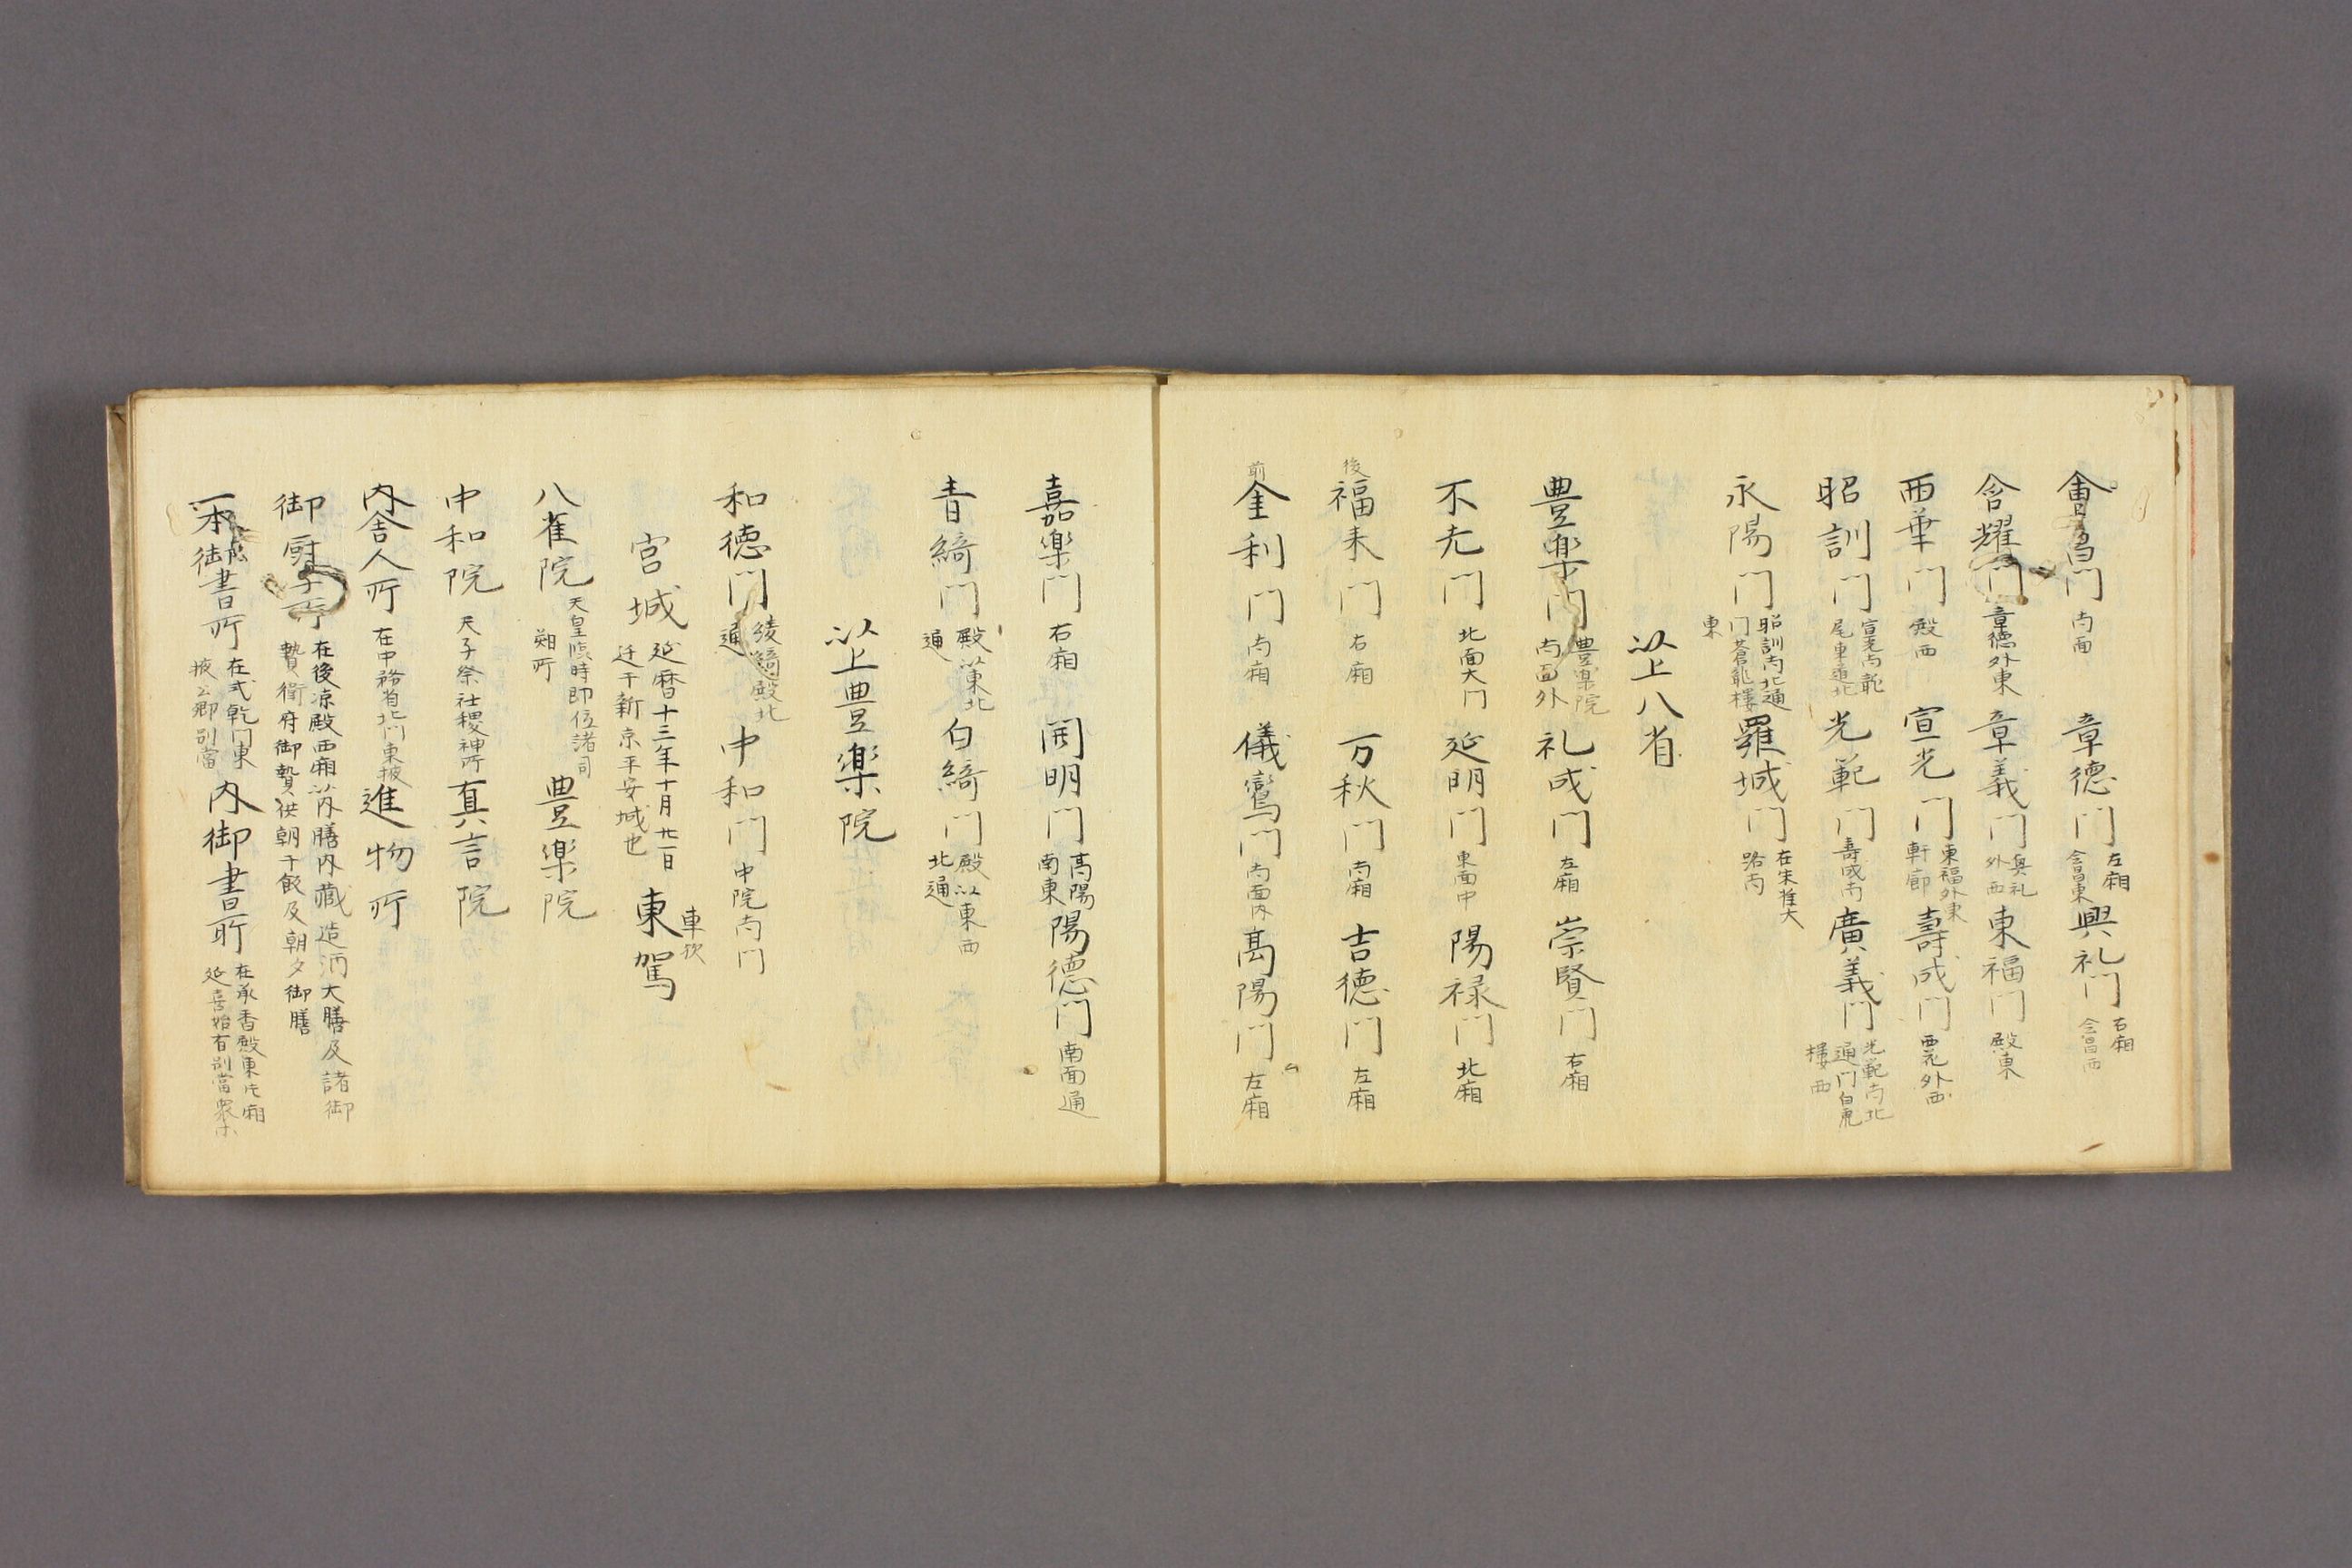 會昌門 南面 章德門 左廂 會昌東 興礼門 右廂 會昌西
含耀門 章徳外東 章義門 興礼外西 東福門 殿東
西華門 殿西 宣光門 東福外東軒廊 壽成門 西花外西
昭訓門 宣光南龍尾東道北 光範門 壽成南 廣義門 光範南北通門白虎樓西
永陽門 昭訓南北通門蒼龍樓東 羅城門 在朱雀大路南
以上八省
豊楽門 豊楽院南面外 礼成門 左廂 崇賢門 右廂
不老門 北面大门 延明門 東面中 陽禄門 北廂
後 福来門 右廂 万秋門 南廂 吉徳門 左廂
前 金利門 南廂 儀鸞門 南面内 高陽門 左廂
嘉楽門 右廂 開明門 高陽南東 陽徳門 南面通
青綺門 殿以東北通 白綺門 殿以東西北通
以上豊楽院
和徳門 綾綺殿北通 中和門 中院南门
宮城 延暦十三年十月廿一日迁于新京平安城也 東駕 車欤
八雀院 天皇臨時即位諸司朔所 豊楽院
中和院 天子祭社稷神所 真言院
内舎人所 在中務省北门東掖 進物所
御厨子所 在後凉殿西廂以内膳内蔵造酒大膳及諸御贄衛府御贄供朝干飯及朝夕御膳
一本御書所 在式乾门東掖公卿別當 内御書所 在承香殿東片廂延喜始有別當衆